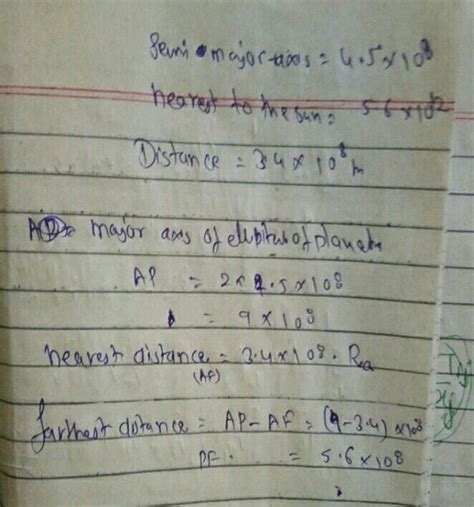 Semi major-axis = 4.5×10⁸
nearest to the sun = 5.6×10¹²
Distance = 3.4×10⁸ m
AP = major axis of of planet
AP = 2×4.5×10⁸
= 9×10⁸
nearest distance = 3.4×10⁸.
(AF)
farthest distance = AP-AF = (9-3.4)×10⁸
PF. = 5.6×10⁸